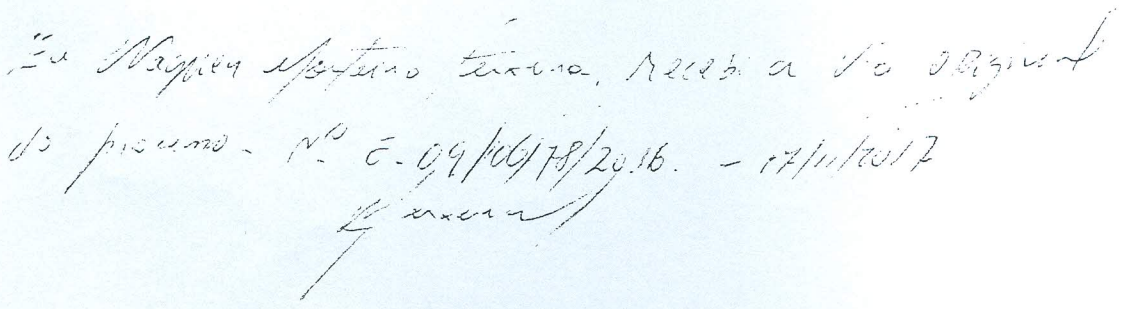 Eu Wagner Monteiro Teixeira, recebi a via original
do processo - Nº E-09/106/78/2016. - 17/11/2017